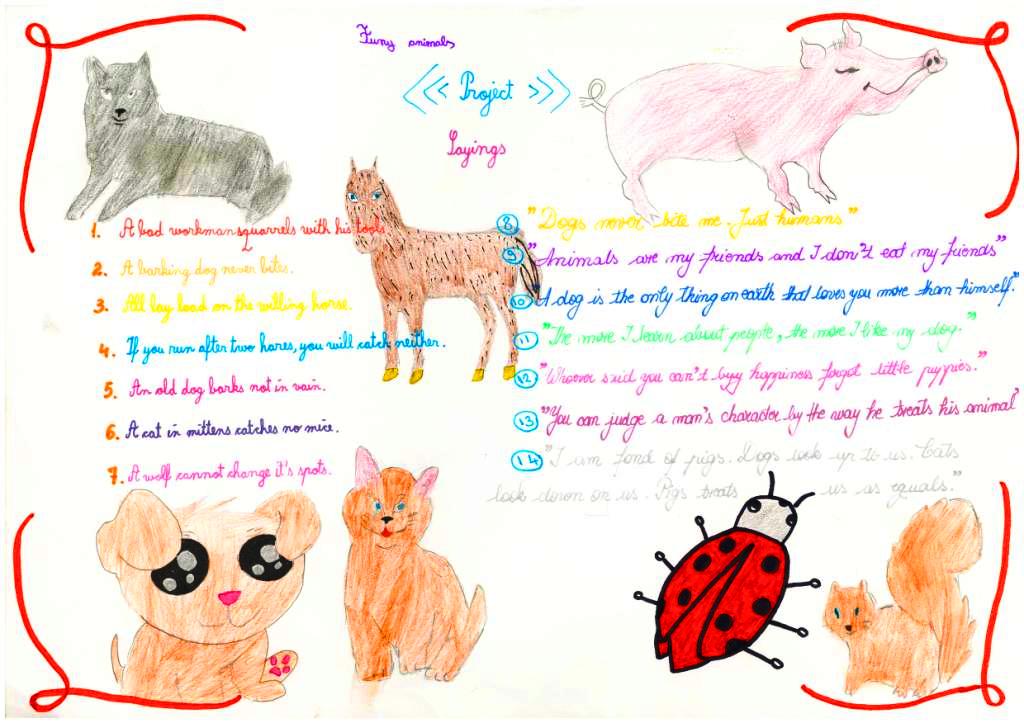 Funy animals
Project
Sayings
1. A bad workman squarrels with his tools
2. A barking dog never bites.
3. All lay load on the willing horse.
4. If you run after two hares, you will catch neither.
5. An old dog barks not in vain.
6. A cat in mittens catches no mice.
7. A wolf cannot change it's spots.
8 "Dogs never bite me. Just humans"
9 "Animals are my friends and I don't eat my friends"
10 A dog is the only thing on earth that loves you more than himself."
11 "The more I learn about people, the more I like my dog."
12 "Whoever said you can't buy happiness forgot little puppies."
13 "You can judge a man's character by the way he treats his animal"
14 "I am fond of pigs. Dogs look up to us. Cats
look down on us. Pigs treats us as equals."